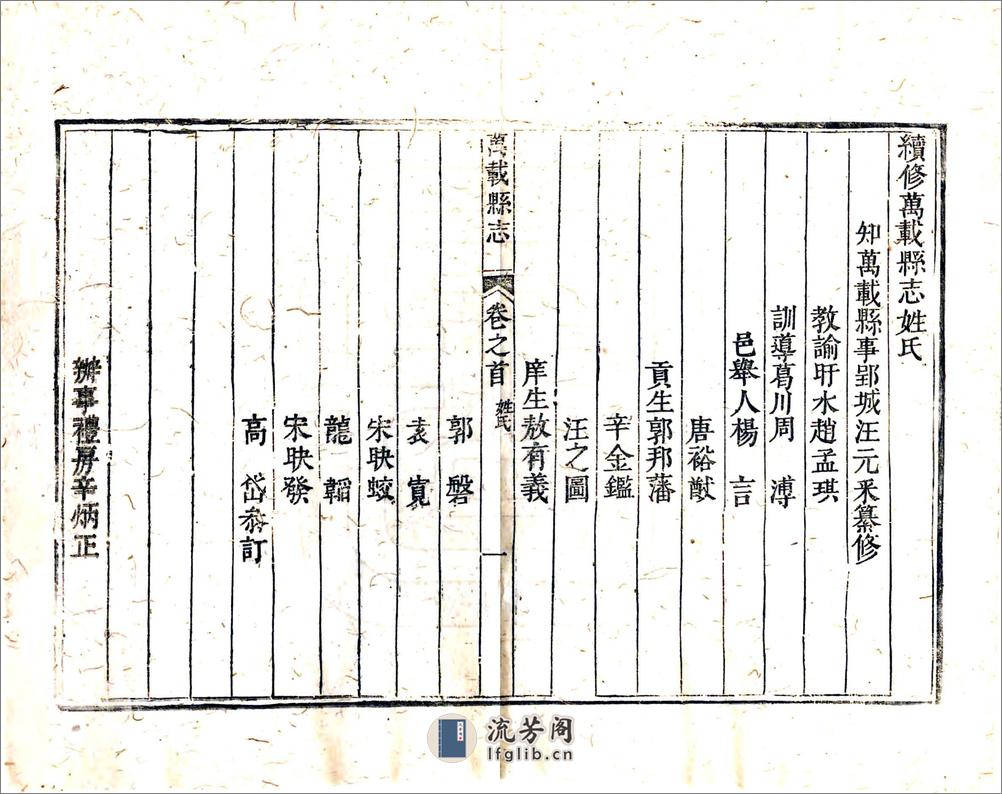 續修萬載縣志姓氏
知萬載縣事郢城汪元采纂修
教諭盱水趙孟琪
訓導葛川周 溥
邑舉人楊 言
唐裕猷
貢生郭邦藩
辛金鑑
汪之圖
庠生敖有義
萬載縣志 卷之首 姓氏 一
郭 磐
袁 寬
宋映蛟
龍 韜
宋映發
高 岱叅訂
辦事禮房辛炳正
流芳阁
lfglib.cn